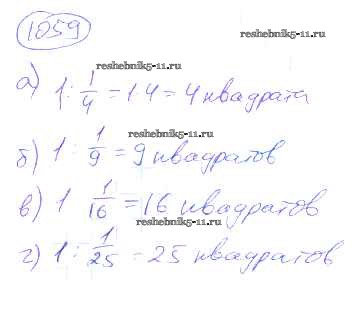 1059
reshebnik5-11.ru
reshebnik5-11.ru
а) 1 : 1/4 = 1 4 = 4 квадрата
reshebnik5-11.ru
б) 1 : 1/9 = 9 квадратов
в) 1 1/16 = 16 квадратов
reshebnik5-11.ru
г) 1 : 1/25 = 25 квадратов